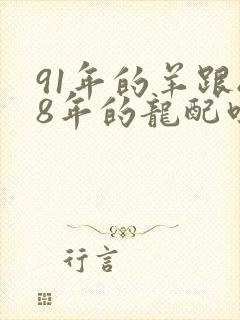 91年的羊跟
8年的龍配
行言